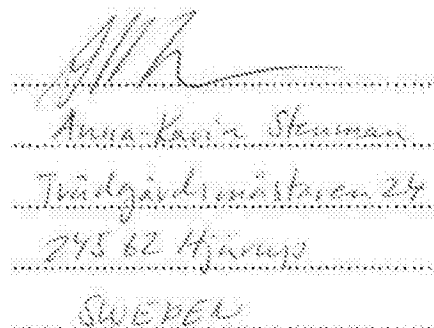 Anna-Karin Stenman
Trädgårdsmästaren 24
245 62 Hjärup
SWEDEN